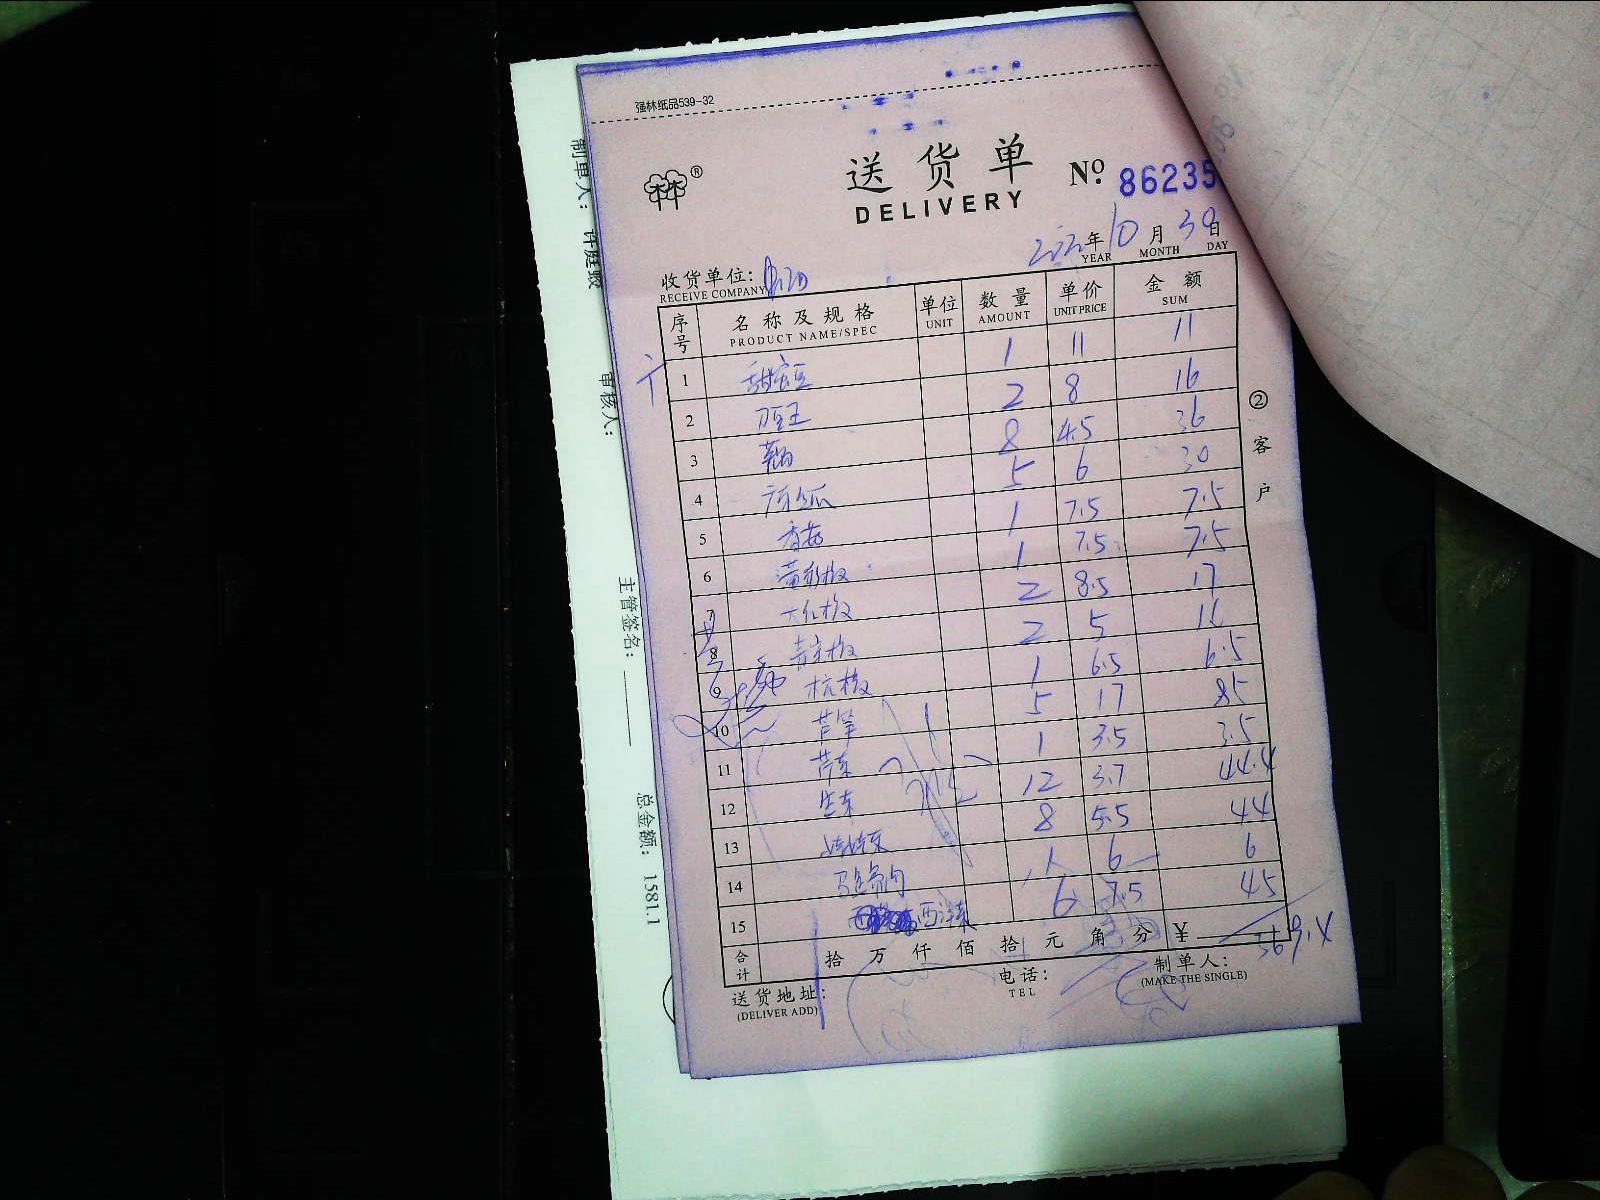 强林纸品539-32
送货单
DELIVERY
Nº 86235
年 10 月 30 日
YEAR MONTH DAY
收货单位:
RECEIVE COMPANY
序号 名称及规格 单位 数量 单价 金额
PRODUCT NAME/SPEC UNIT AMOUNT UNIT PRICE SUM
1 甜蜜豆 1 11 11
2 刀豆王 2 8 16
3 8 4.5 36
4 5 6 30
5 香菇 1 7.5 7.5
6 黄彩椒 1 7.5 7.5
7 大红椒 2 8.5 17
8 2 5
9 杭椒 1 6.5 6.5
10 芦笋 5 17 85
11 芹菜 1 3.5 3.5
12 生菜 12 3.7 44.4
13 娃娃菜 8 5.5 44
14 1 6 6
15 西洋菜 6 7.5 45
合计 拾 万 仟 佰 拾 元 角 分 ¥ 369.4
送货地址: 电话: 制单人:
(DELIVER ADD) TEL (MAKE THE SINGLE)
②客户
制单人:
审核人:
主管签名:
总金额: 1581.1